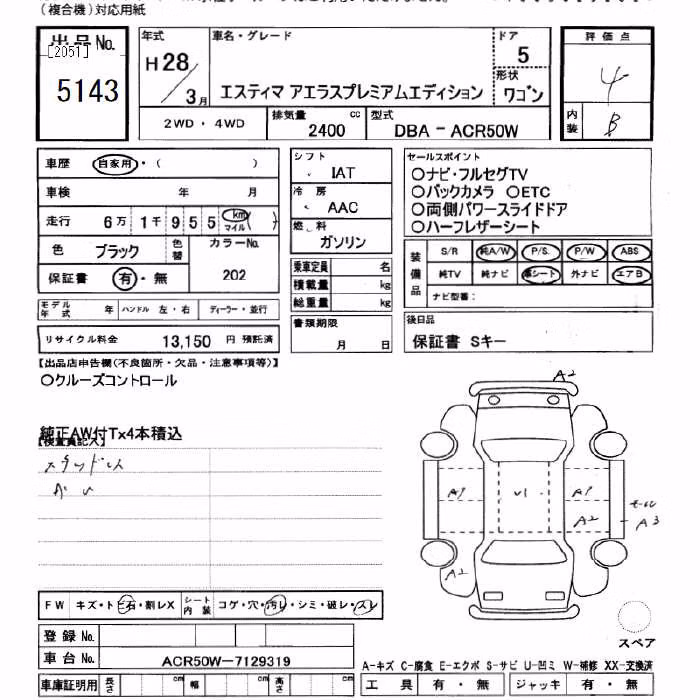 (複合機)対応用紙
出品No.
[2051]
5143
年式
H28
3月
車名・グレード
エスティマ アエラスプレミアムエディション
ドア
5
形状
ワゴン
評価点
4
内装
B
2WD・4WD
排気量
2400
cc
型式
DBA-ACR50W
車歴
自家用・( )
車検
年 月
走行
6万 1千 9 5 5
km
マイル
( )
色
ブラック
色替
カラーNo.
202
保証書
有・無
シフト
IAT
冷房
AAC
燃料
ガソリン
乗車定員 名
積載量 kg
総重量 kg
書類期限
月 日
セールスポイント
○ナビ・フルセグTV
○バックカメラ ○ETC
○両側パワースライドドア
○ハーフレザーシート
装備品
S/R 純A/W P/S. P/W ABS
純TV 純ナビ 革シート 外ナビ エアB
ナビ型番:
モデル年式 年 ハンドル 左・右 ディーラー・並行
リサイクル料金 13,150 円 預託済
後日品
保証書 Sキー
【出品店申告欄(不良箇所・欠品・注意事項等)】
○クルーズコントロール
純正AW付Tx4本積込
【検査員記入】
A2
A1
V1
A1
A2
モール
A3
A2
FW キズ・トビ石・割レX シート内装 コゲ・穴・汚レ・シミ・破レ・スレ
登録No.
車台No.
ACR50W-7129319
スペア
A-キズ C-腐食 E-エクボ S-サビ U-凹ミ W-補修 XX-交換済
車庫証明用 長さ cm 幅 cm 高さ cm
工具 有・無 ジャッキ 有・無